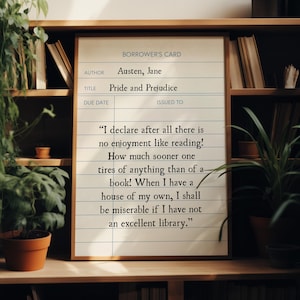 BORROWER'S CARD
AUTHOR Austen, Jane
TITLE Pride and Prejudice
DUE DATE ISSUED TO
“I declare after all there is
no enjoyment like reading!
How much sooner one
tires of anything than of a
book! When I have a
house of my own, I shall
be miserable if I have not
an excellent library.”